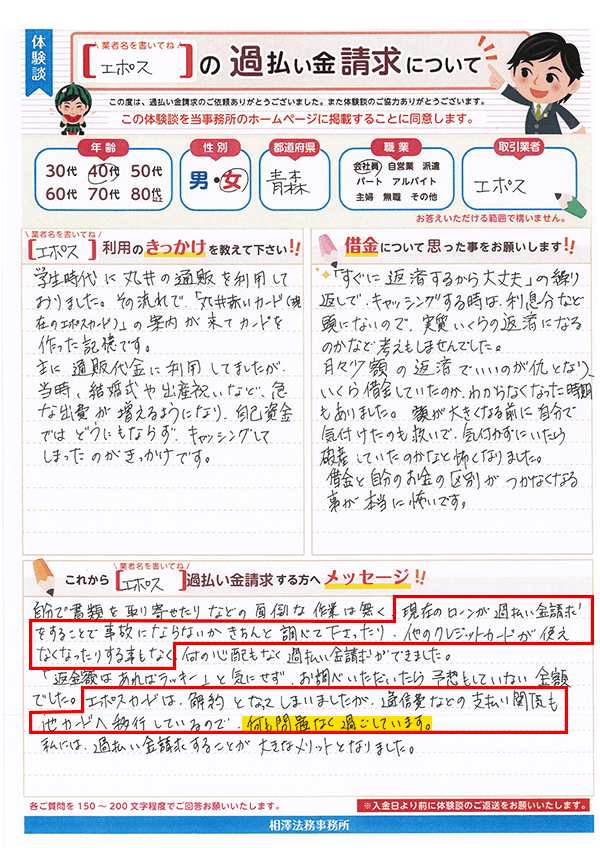 体験談
業者名を書いてね
[エポス]の過払い金請求について
この度は、過払い金請求のご依頼ありがとうございました。また体験談のご協力ありがとうございます。
この体験談を当事務所のホームページに掲載することに同意します。
年齢
30代 40代 50代
60代 70代 80代以上
性別
男・女
都道府県
青森
職業
会社員 自営業 派遣
パート アルバイト
主婦 無職 その他
取引業者
エポス
お答えいただける範囲で構いません。
業者名を書いてね
[エポス]利用のきっかけを教えて下さい!!
学生時代に丸井の通販を利用して
おりました。その流れで、「丸井赤いカード(現
在のエポスカード)」の案内が来てカードを
作った記憶です。
主に通販代金に利用してましたが、
当時、結婚式や出産祝いなど、急
な出費が増えるようになり、自己資金
ではどうにもならず、キャッシングして
しまったのがきっかけです。
借金について思った事をお願いします!!
「すぐに返済するから大丈夫」の繰り
返しで、キャッシングする時は、利息分など
頭にないので、実質いくらの返済になる
のかなど考えもしませんでした。
月々少額の返済でいいのが仇となり、
いくら借金していたのか、わからなくなった時期
もありました。額が大きくなる前に自分で
気付けたのも救いで、気付かずにいたら
破産していたのかなと怖くなりました。
借金と自分のお金の区別がつかなくなる
事が本当に怖いです。
業者名を書いてね
これから[エポス]過払い金請求する方へメッセージ!!
自分で書類を取り寄せたりなどの面倒な作業は無く、現在のローンが過払い金請求
をすることで事故にならないかきちんと調べて下さったり、他のクレジットカードが使え
なくなったりする事もなく、何の心配もなく過払い金請求ができました。
「返金額はあればラッキー」と気にせず、お調べいただいたら予想もしていない金額
でした。エポスカードは、解約となってしまいましたが、通信費などの支払い関係も
他カードへ移行しているので、何も問題なく過ごしています。
私には、過払い金請求することが大きなメリットとなりました。
各ご質問を150〜200文字程度でご回答お願いいたします。
※入金日より前に体験談のご返送をお願いいたします。
相澤法務事務所